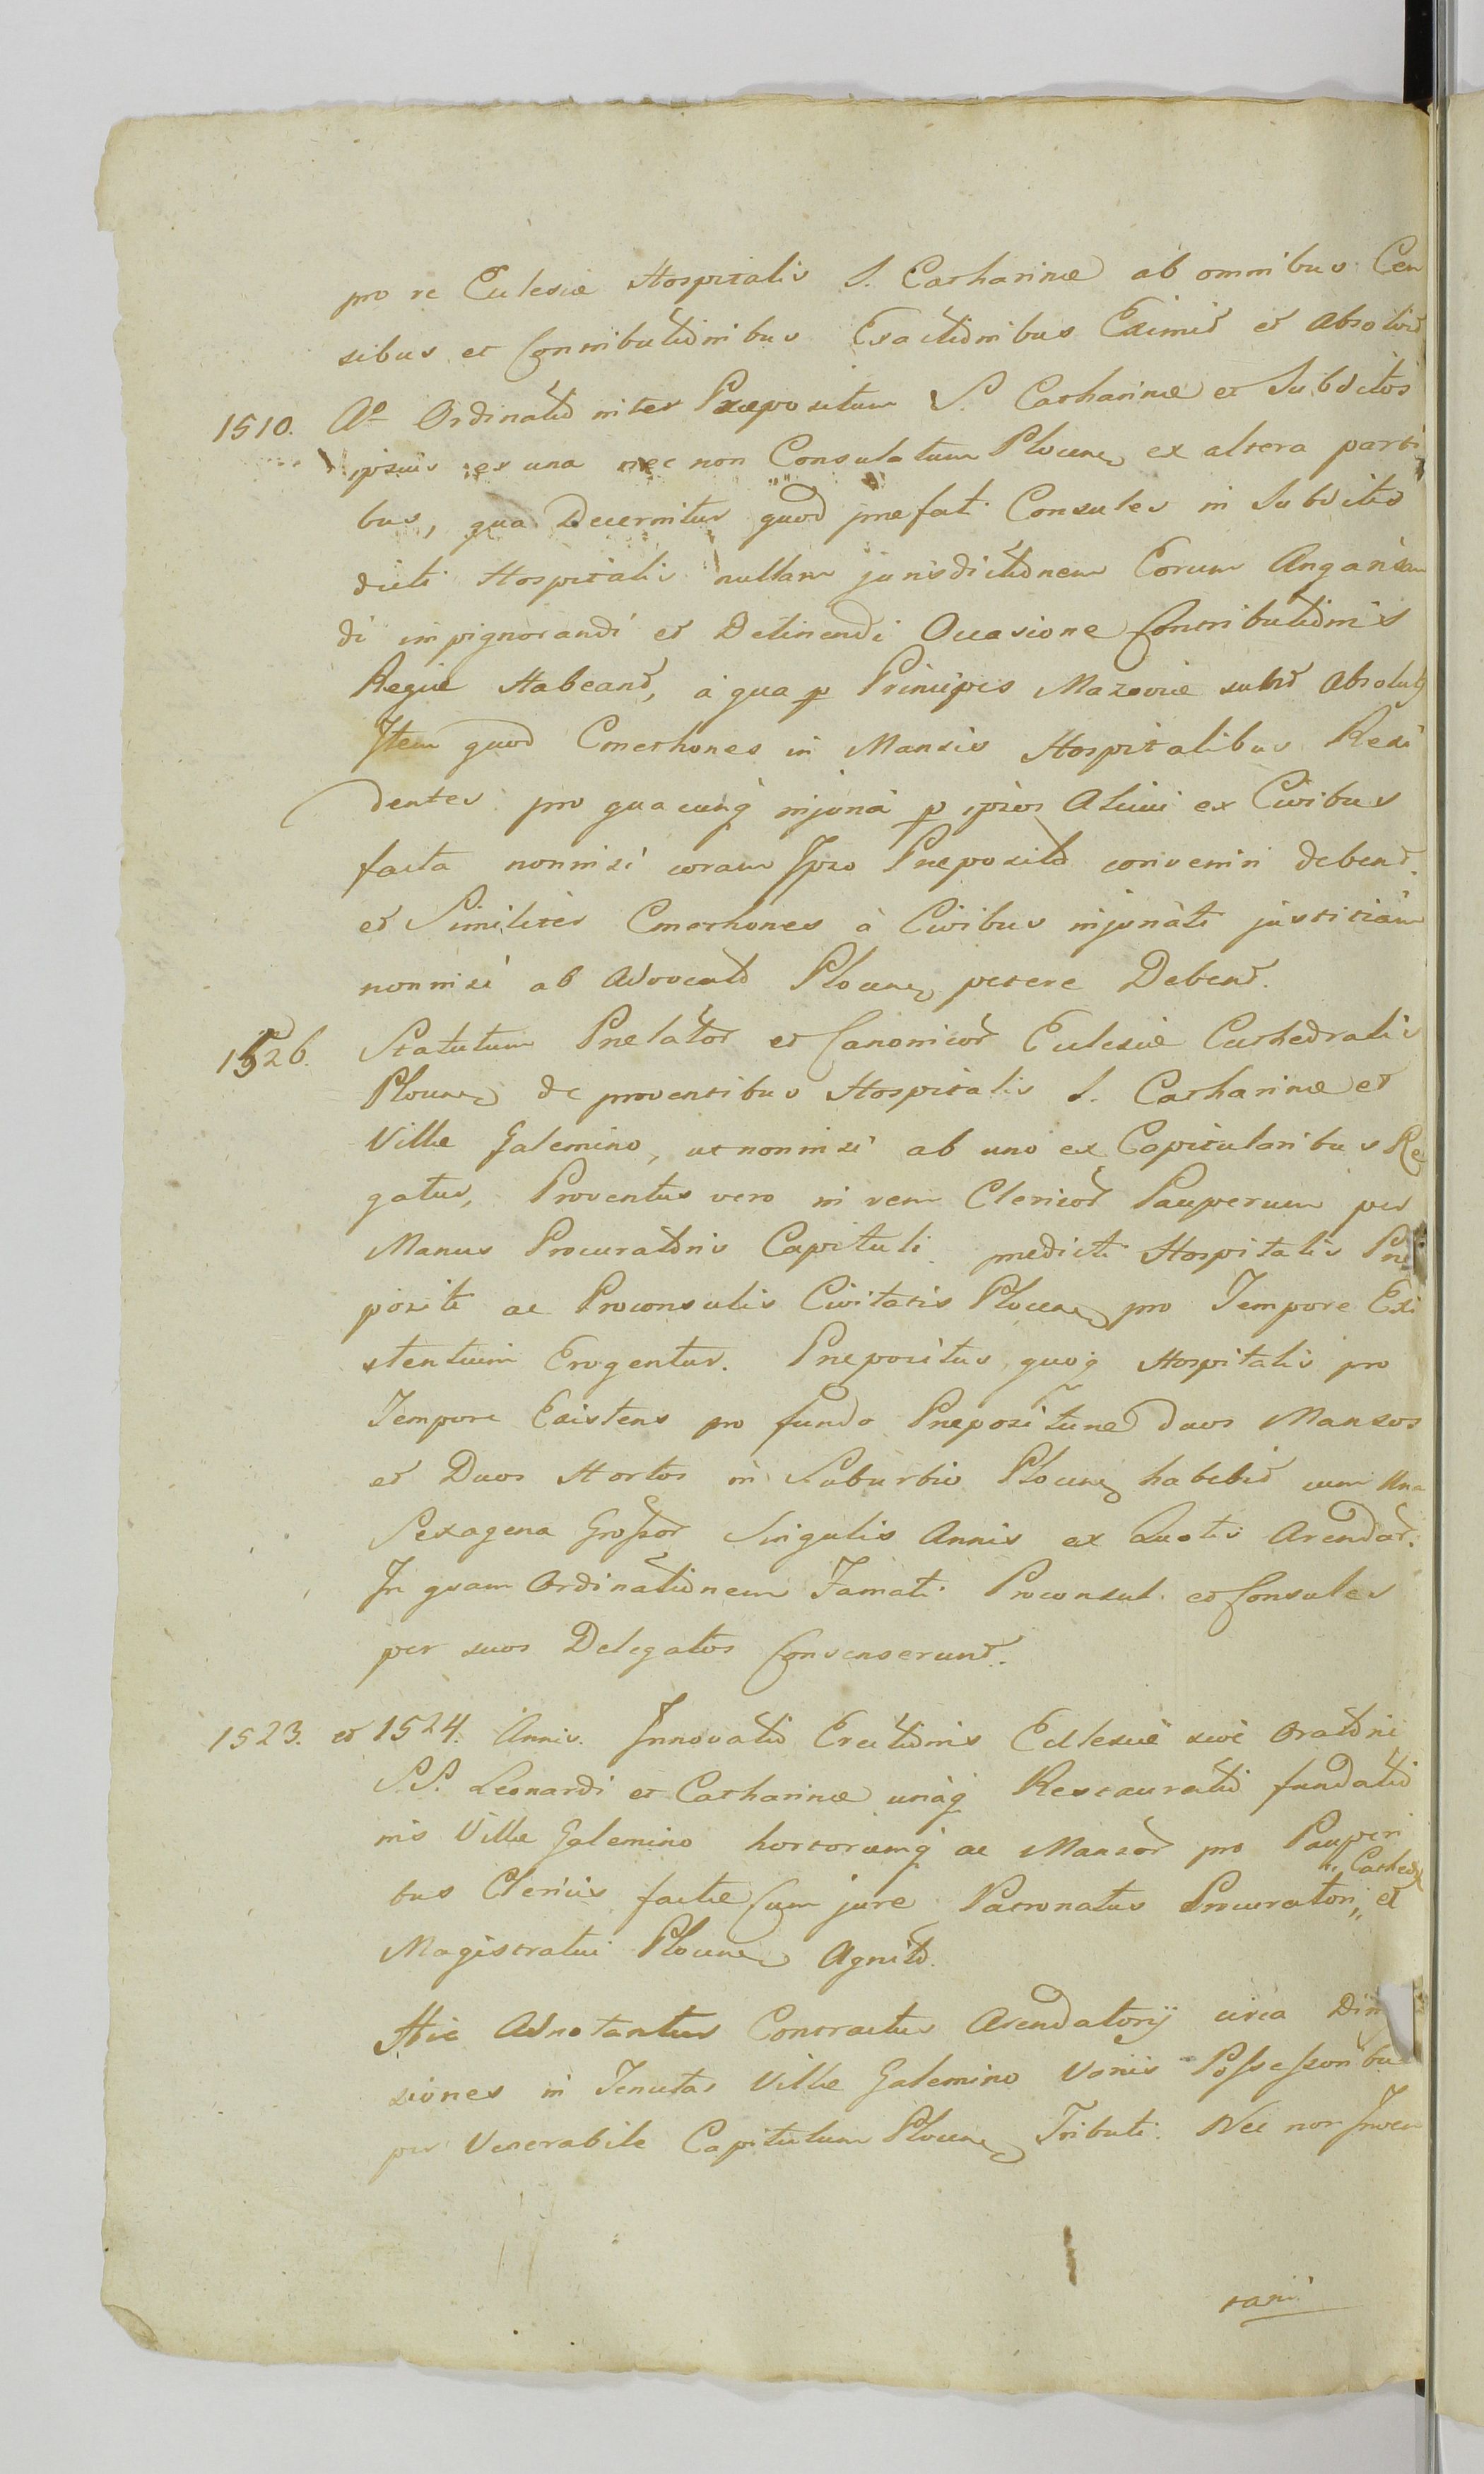 pro re Eclesiæ Hospitalis S. Catharinæ ab omnibus Cen
sibus et Contributionibus Exactionibus Eximit et Absolvit
1510. Ao Ordinatio inter Præpositum S. Catharinæ et Subditos
ipsius ex una nec non Consulatum Plocen ex altera parti
bus, qua Decernitur quod præfati Consules in Subditos
dicti Hospitalis nullam jurisdictionem Eorum Angarian
di impignorandi et Detinendi Occasione Contributionis
Regiæ Habeant, a qua p Principes Mazoviæ sunt Absoluti
Item quod Cmethones in Mansis Hospitalibus Resi
dentes pro quacunq injuria p ipsos Alicui ex Civibus
facta nonnisi coram Ipso Præposito conveniri debent.
et Similiter Cmethones à Civibus injuriati justitiam
nonnisi ab Advocato Plocen petere Debent.
1526. Statutum Prælator et Canonicor Eclesiæ Cathedralis
Plocen de proventibus Hospitalis S. Catharinæ et
Villæ Galemino, ut nonnisi ab uno ex Capitularibus Re
gatur, Proventus vero in rem Clericor Pauperum per
Manus Procuratoris Capituli prædicti Hospitalis Præ
positi ac Proconsulis Civitatis Plocen pro Tempore Exi
stentium Erogentur. Præpositus quoq Hospitalis pro
Tempore Existens pro fundo Præposituræ duos Mansos
et Duos Hortos in Suburbio Plocen habebit cum Una
Sexagena Grossor Singulis Annis ex Quotis Arendar.
In quam Ordinationem Famati Proconsul et Consules
per suos Delegatos Consenserunt.
1523. et 1524. Annis. Innovatio Erectionis Ecllesiæ sive Oratorii
S.S. Leonardi et Catharinæ unàq Restauratio fundatio
nis Villæ Galemino hortorumq ac Mansor pro Pauperi
bus Clericis factæ Cum jure Patronatus Procuratori " Cathedr " et
Magistratui Plocen Agnito.
Hic Adnotantur Contractus Arendatorij circa Dim
siones in Tenutas Villæ Galemino Variis Possessoribus
per Venerabile Capitulum Plocen Tributi. Nec non Inven
tarii